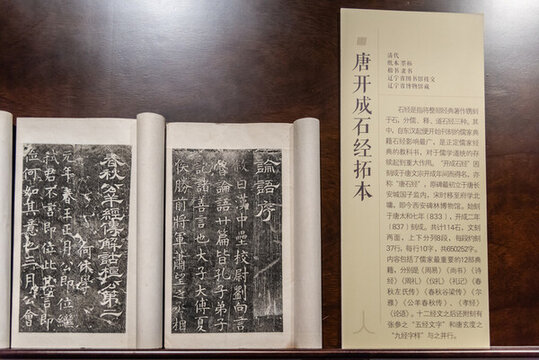 唐开成石经拓本
清代
纸本 墨拓
楷书 隶书
辽宁省图书馆拨交
辽宁省博物馆藏
石经是指将整部经典著作镌刻
于石，分儒、释、道石经三种。其
中，自东汉起便开始刊刻的儒家典
籍石经影响最广，是正定儒家经
典的教科书，对于儒学道统的存
续起到重大作用。“开成石经”因
刻成于唐文宗开成年间而得名，亦
称“唐石经”，原碑最初立于唐长
安城国子监内，宋时移至府学北
墉，即今西安碑林博物馆。始刻
于唐太和七年（833），开成二年
（837）刻成。共计114石，文刻
两面，上下分列8段，每段约刻
37行，每行10字，共650252字。
内容包括了儒家最重要的12部典
籍，分别是《周易》《尚书》《诗
经》《周礼》《仪礼》《礼记》《春
秋左氏传》《春秋谷梁传》《尔
雅》《公羊春秋传》、《孝经》
《论语》。十二经文之后还附刻有
张参之“五经文字”和唐玄度之
“九经字样”与之并行。
論語序
叙曰漢中壘校尉劉向言
魯論語廿篇皆孔子弟子
記諸善言也大子大傅夏
侯勝前將軍蕭望之丞相
春秋公羊經傳解詁桓公第二
何休學
元年春王正月公即位繼
弑君不言即位此其言即
位何如其意也三月公會